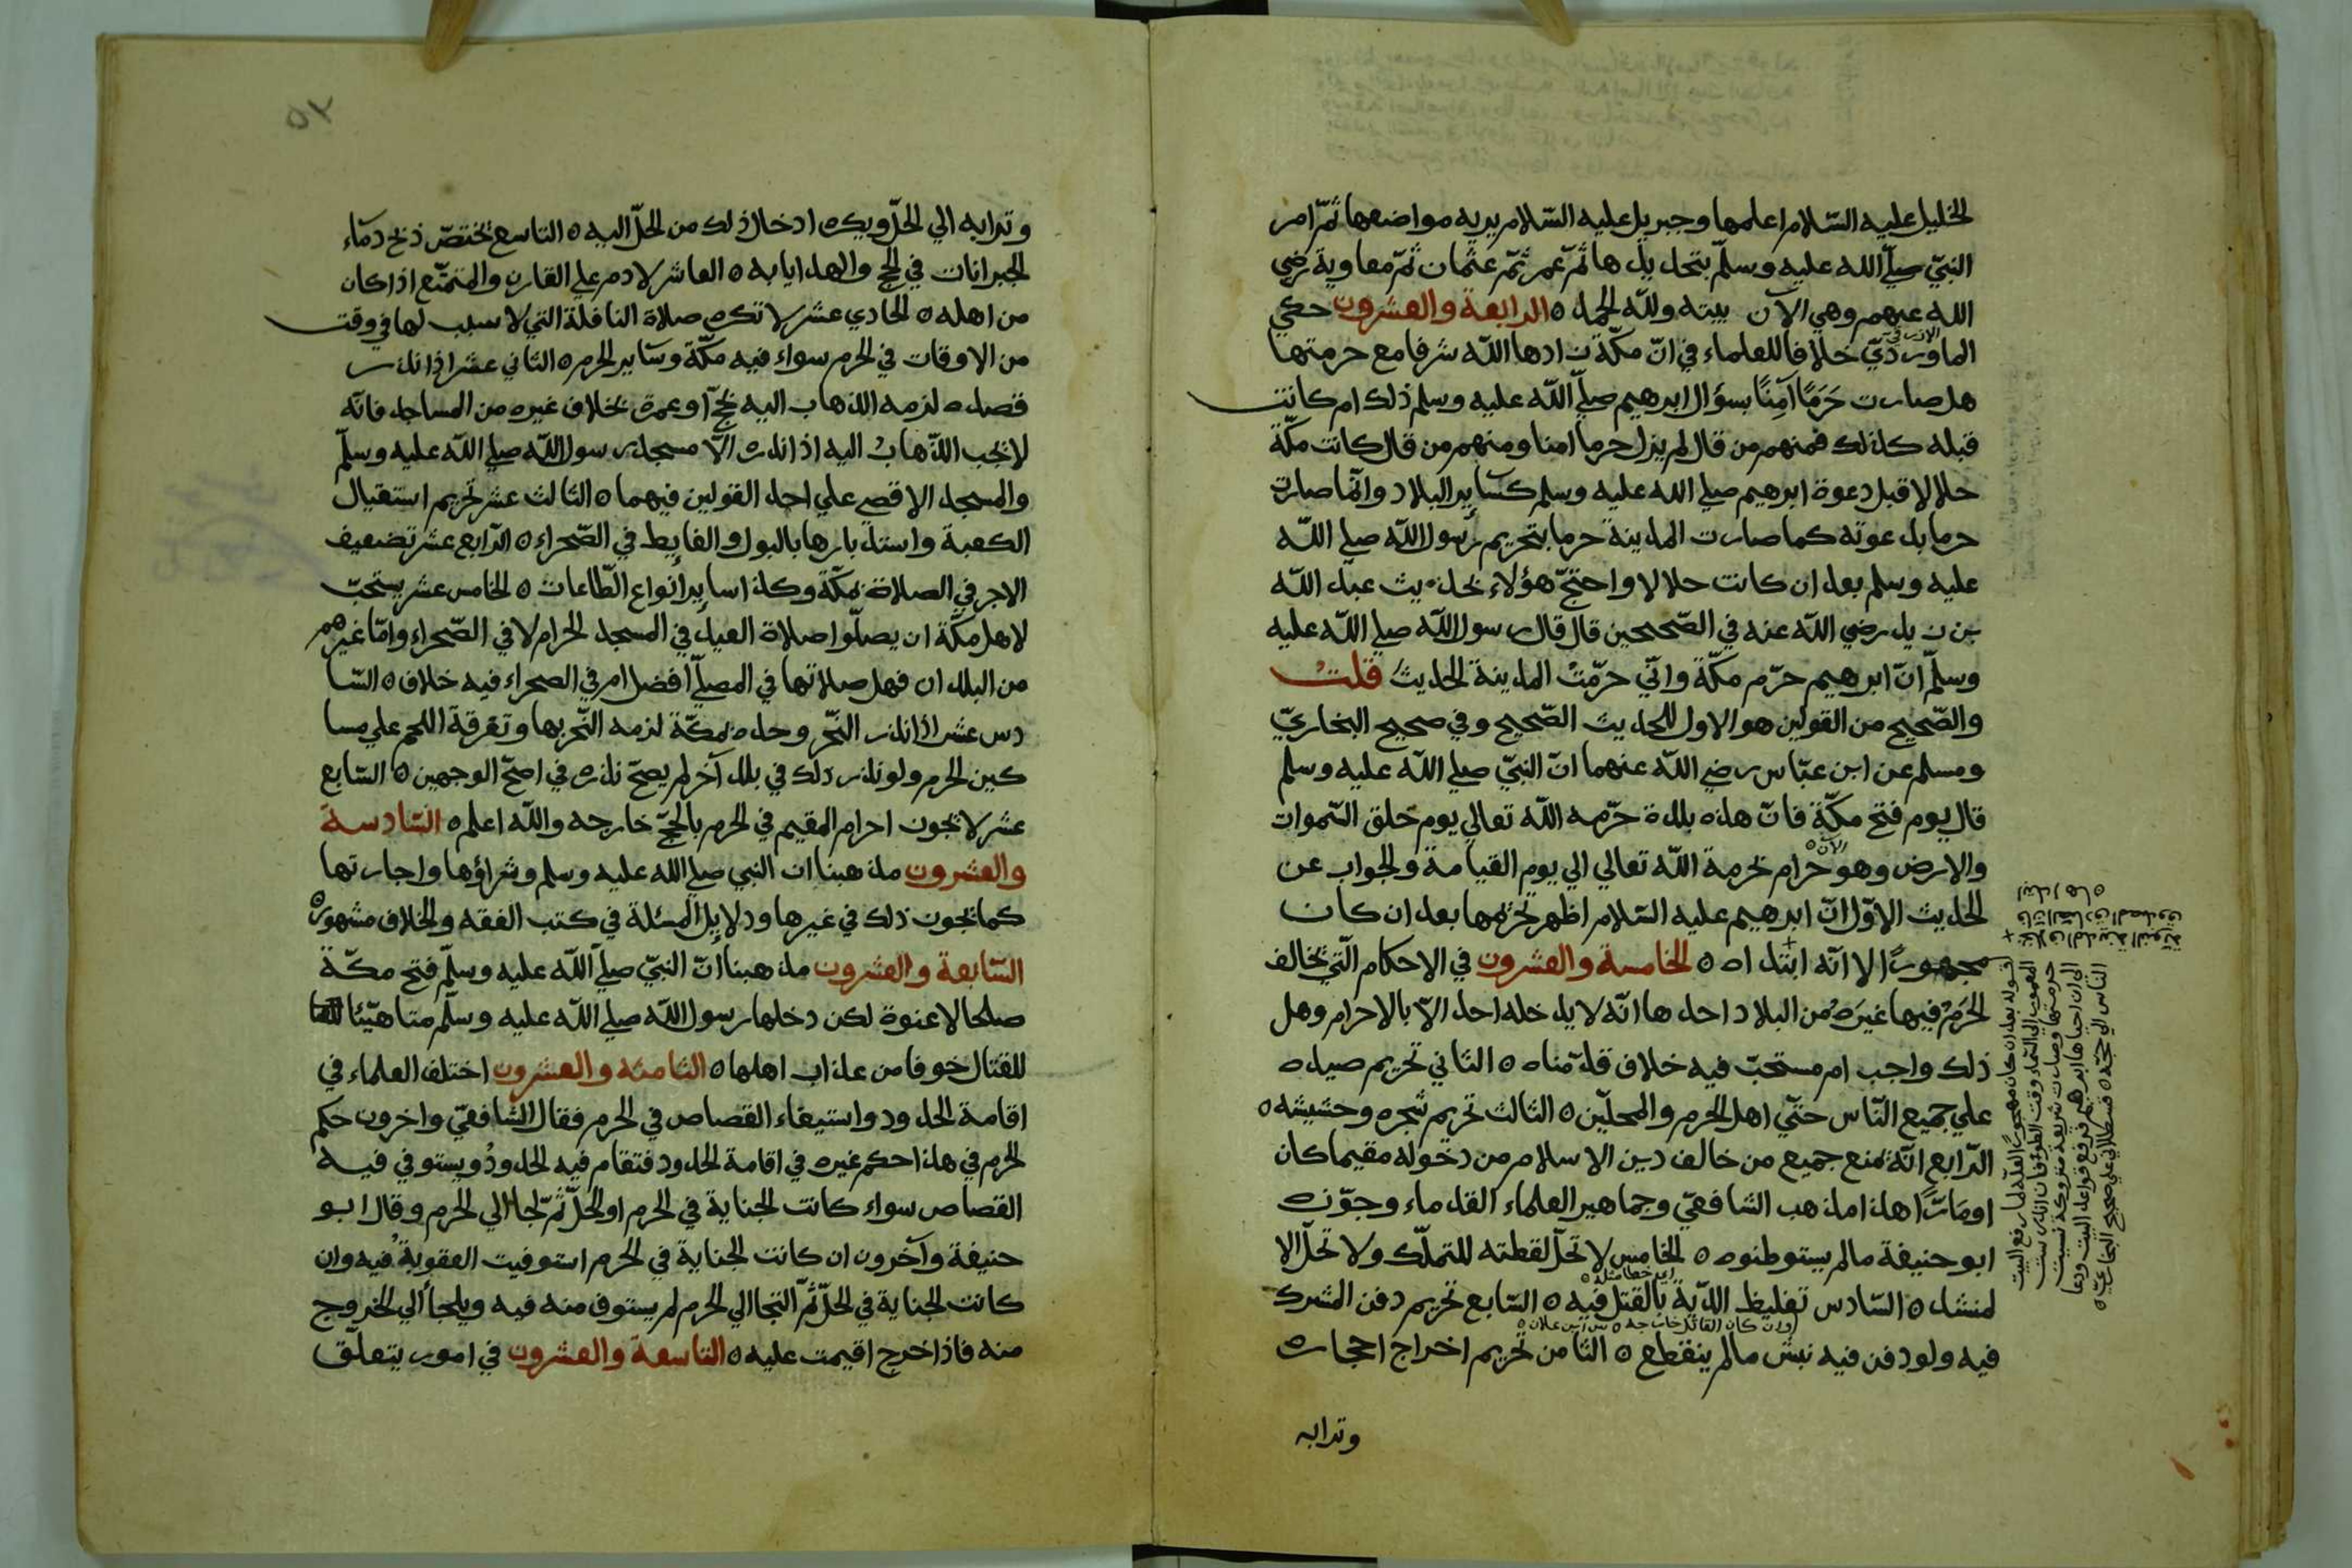 الخليل عليه السّلام اعلمها وجبريل عليه السّلام يريه مواضعها ثمّ امر
النبيّ صلّى الله عليه وسلّم بتحديدها ثمّ عمر ثمّ عثمان ثمّ معاوية رضي
الله عنهم وهي الآن بينه ولله الحمد ٥ الرابعة والعشرون حكي
الماوردي خلافا للعلماء في انّ مكّة زادها اللّه شرفا مع حرمتها
هل صارت حَرَمًا آمِنًا بسؤال ابرهيم صلّي اللّه عليه وسلم ذلك ام كانت
قبله كذلك فمنهم من قال لم يزل حرما امنا ومنهم من قال كانت مكّة
حلالا قبل دعوة ابرهيم صلي الله عليه وسلم كسآير البلاد وانّما صارت
حرما بدعوته كما صارت المدينة حرما بتحريم رسول اللّه صلي اللّه
عليه وسلم بعد ان كانت حلالا واحتجّ هؤلاء بحديث عبد اللّه
بن زيد رضي اللّه عنه في الصّحيحين قال قال رسول اللّه صلي اللّه عليه
وسلّم انّ ابرهيم حرّم مكّة وانّي حرّمتُ المدينة الحديثُ قلتُ
والصّحيح من القولين هو الاول للحديث الصّحيح وفي صحيح البخاريّ
ومسلم عن ابن عبّاس رضي اللّه عنهما انّ النبيّ صلي اللّه عليه وسلم
قال يوم فتح مكّة فانّ هذه بلدة حرّمه اللّه تعالي يوم خلق السّموات
والارض وهو حرام بحرمة اللّه تعالي الي يوم القيامة والجواب عن
الحديث الاوّل انّ ابرهيم عليه السّلام اظهر تحريمها بعد ان كان
مهجورًا لا انّه ابتداه ٥ الخامسة والعشرون في الاحكام الّتي يخالف
الحَرَمُ فيها غيرَهُ من البلاد احدها انّه لا يدخله احد الاّ بالاحرام وهل
ذلك واجب ام مستحبّ فيه خلاف قدّمناه ٥ الثاني تحريم صيده
علي جميع النّاس حتّي اهل الحرم والمحلّين ٥ الثالث تحريم شجره وحشيشه ٥
الرّابع انّه يمنع جميع من خالف دين الاسلام من دخوله مقيما كان
او مارًّا هذا مذهب الشافعيّ وجماهير العلماء القدماء وجوّزه
ابو حنيفة ما لم يستوطنوه ٥ الخامس لا تحلّ لقطته للتملّك ولا تحلّ الا
لمنشد ٥ السّادس تغليظ الدّية بالقتل فيه ٥ السّابع تحريم دفن المشرك
فيه ولو دفن فيه نبش ما لم ينقطع ٥ الثامن تحريم اخراج احجاره
وترابه
قوله بعد ان كان مهجورًا لعلّه لما رفع البيت
المعمور الي السّماء وقت الطوفان اندرست
حرمتها وصارت شريعة متروكة نسيت
الي ان احياها ابرهيم فرفع قواعد البيت ودعا
الناس الي حجّه ٥ قسطلاني علي صحيح البخاريّ ٥
وترابه الي الحلّ ويكره ادخال ذلك من الحلّ اليه ٥ التاسع يختصّ ذبح دمآء
الجبرانات في الحج والهدايا به ٥ العاشر لا دم علي القارن والمتمتّع اذا كان
من اهله ٥ الحادي عشر لا تكره صلاة النافلة التي لا سبب لها في وقت
من الاوقات في الحرم سواء فيه مكّة وسآير الحرم ٥ الثاني عشر اذا نذر
قصده لزمه الذهاب اليه بحجّ او عمرة بخلاف غيره من المساجد فانّه
لا يجب الذّهابُ اليه اذا نذره الّا مسجد رسول اللّه صلي اللّه عليه وسلّم
والمسجد الاقصي علي احد القولين فيهما ٥ الثالث عشر تحريم استقبال
الكعبة واستدبارها بالبول والغايط في الصّحراء ٥ الرّابع عشر تضعيف
الاجر في الصلاة بمكّة وكذا سآير انواع الطّاعات ٥ الخامس عشر يستحبّ
لاهل مكّة ان يصلّوا صلاة العيد في المسجد الحرام لا في الصّحراء وامّا غيرهم
من البلدان فهل صلاتها في المصلّي افضل ام في الصحراء فيه خلاف ٥ السّا
دس عشر اذا نذر النّحر وحده بمكّة لزمه النّحر بها وتفرقة اللحم علي مسا
كين الحرم ولو نذر ذلك في بلد آخر لم يصحّ نذره في اصحّ الوجهين ٥ السّابع
عشر لا يجوز احرام المقيم في الحرم بالحجّ خارجه واللّه اعلم ٥ السّادسة
والعشرون مذهبنا ان النبي صلي الله عليه وسلم وشراؤها واجارتها
كما يجوز ذلك في غيرها ودلايل المسئلة في كتب الفقه والخلاف مشهورة
السّابعة والعشرون مذهبنا انّ النبيّ صلّي اللّه عليه وسلّم فتح مكّة
صلحا لا عنوة لكن دخلها رسول اللّه صلي اللّه عليه وسلّم متاهّبًا
للقتال خوفا من عذاب اهلها ٥ الثامنة والعشرون اختلف العلماء في
اقامة الحدود واستيفاء القصاص في الحرم فقال الشافعيّ واخرون حكم
الحرم في هذا حكم غيره في اقامة الحدود فتقام فيه الحدودُ ويستوفي فيه
القصاص سواء كانت الجناية في الحرم او الحلّ ثمّ لجا الي الحرم وقال ابو
حنيفة وآخرون ان كانت الجناية في الحرم استوفيت العقوبةُ فيه وان
كانت الجناية في الحلّ ثمّ التجا الي الحرم لم يستوف منه فيه ويلجأ الي الخروج
منه فاذا خرج اقيمت عليه ٥ التاسعة والعشرون في امور يتعلّق